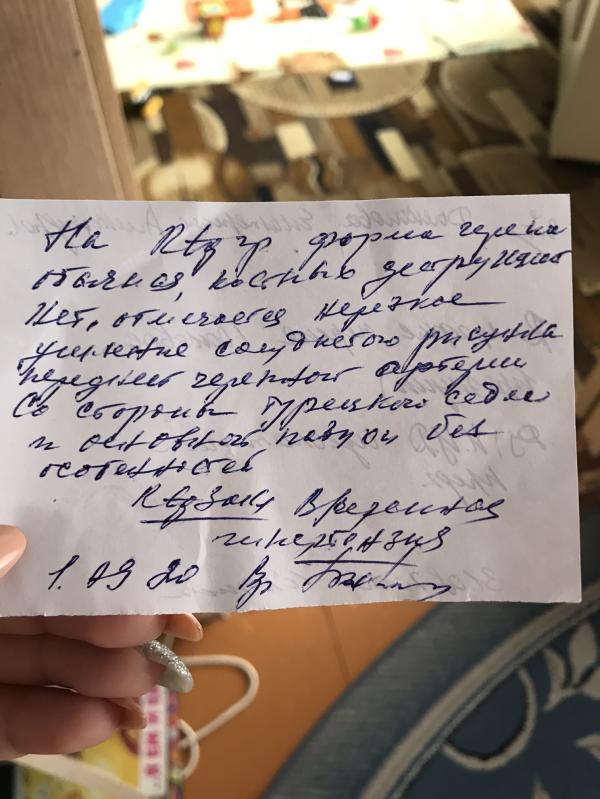 На Rtg гр. форма черепа
обычная, костных деструкций
нет, отмечается нерезкое
усиление сосудистого рисунка
передней черепной артерии
Со стороны турецкого седла
и основной пазухи без
особенностей
Rtgзакл
гипертензия
1.09 20 Вр